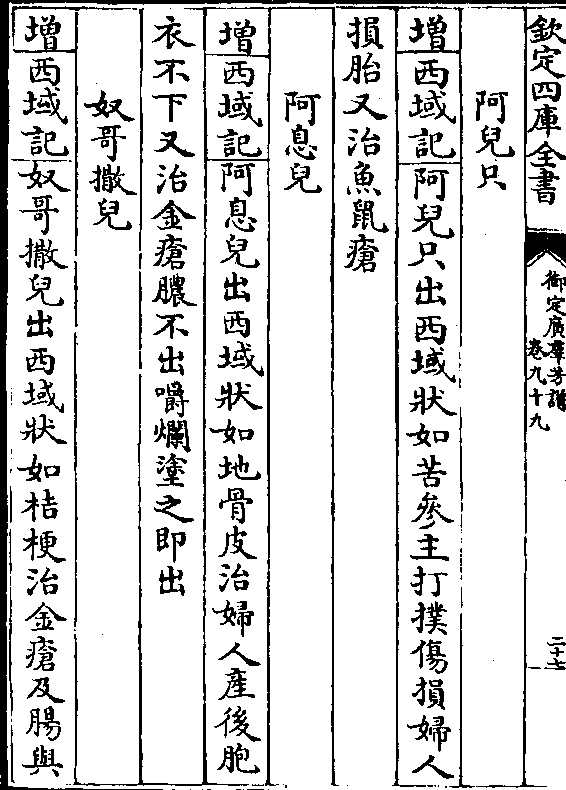 欽定四庫全書
御定廣羣芳譜
卷九十九
二十七
阿兒只
增西域記阿兒只出西域狀如苦參主打撲傷損婦人
損胎又治魚鼠瘡
阿息兒
增西域記阿息兒出西域狀如地骨皮治婦人產後胞
衣不下又治金瘡膿不出嚼爛塗之即出
奴哥撒兒
增西域記奴哥撒兒出西域狀如桔梗治金瘡及腸與